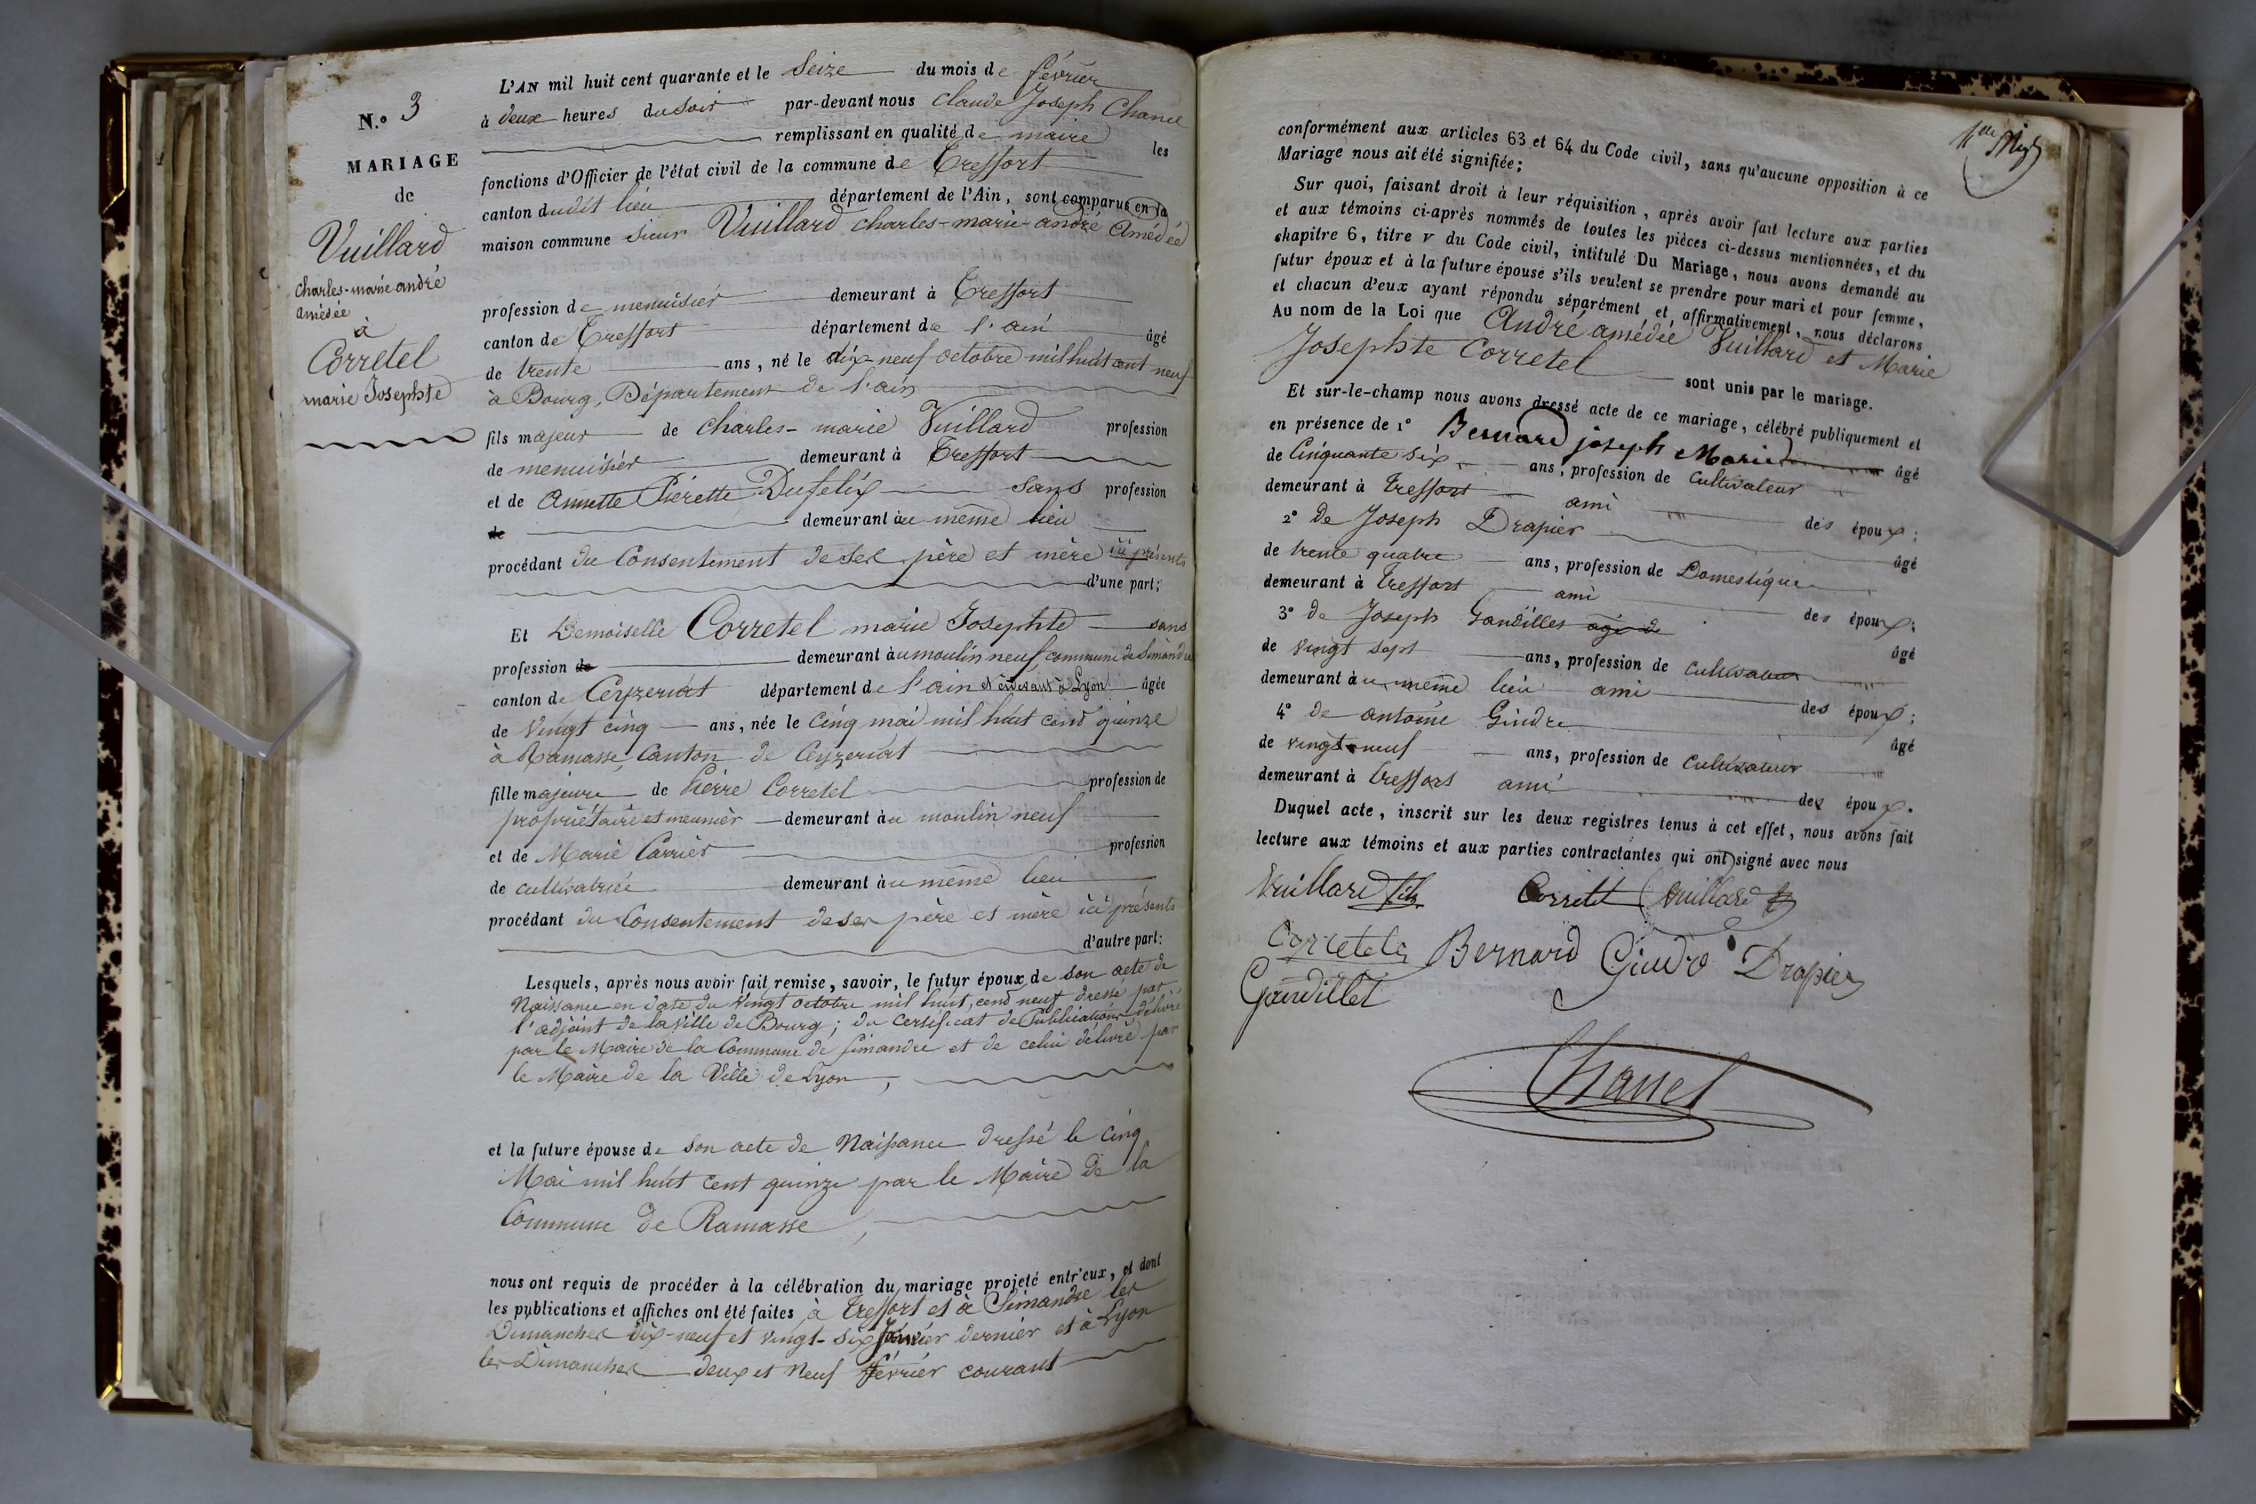 N.° 3
MARIAGE
de
Vuillard
charles-marie andré
amédée
à
Corretel
marie Josephte
L'AN mil huit cent quarante et le Seize du mois de février
à deux heures du soir par-devant nous Claude Joseph Chanel
remplissant en qualité de maire les
fonctions d'Officier de l'état civil de la commune de Treffort
canton dudit lieu département de l'Ain, sont comparus en la
maison commune sieur Vuillard charles-marie-andré Amédée
profession de menuisier demeurant à Treffort
canton de Treffort département de l'ain âgé
de trente ans, né le dix-neuf octobre mil huit cent neuf
à Bourg, Département de l'ain
fils majeur de Charles-marie Vuillard profession
de menuisier demeurant à Treffort
et de Annette Pierette Dufelix sans profession
de demeurant au même lieu
procédant du Consentement de ses père et mère ici présents
d'une part;
Et Demoiselle Corretel marie Josephte sans
profession de demeurant au moulin neuf, commune de Simandre
canton de Ceyzeriat département de l'ain et à Lyon âgée
de vingt cinq ans, née le cinq mai mil huit cent quinze
à Ramasse, Canton de Ceyzeriat
fille majeure de Pierre Corretel profession de
propriétaire et meunier demeurant au moulin neuf
et de Marie Carrier profession
de cultivatrice demeurant au même lieu
procédant du Consentement de ses père et mère ici présents
d'autre part:
Lesquels, après nous avoir fait remise, savoir, le futur époux de son acte de
Naissance en date du vingt octobre mil huit cent neuf dressé par
l'adjoint de la ville de Bourg; du certificat de Publications délivré
par le Maire de la Commune de Simandre et de celui délivré par
le Maire de la Ville de Lyon,
et la future épouse de son acte de Naissance dressé le cinq
Mai mil huit cent quinze par le Maire de la
Commune de Ramasse,
nous ont requis de procéder à la célébration du mariage projeté entr'eux, et dont
les publications et affiches ont été faites à Treffort et à Simandre les
Dimanches dix-neuf et vingt-six Janvier dernier et à Lyon
les Dimanches deux et neuf février courant
conformément aux articles 63 et 64 du Code civil, sans qu'aucune opposition à ce
Mariage nous ait été signifiée;
Sur quoi, faisant droit à leur réquisition, après avoir fait lecture aux parties
et aux témoins ci-après nommés de toutes les pièces ci-dessus mentionnées, et du
chapitre 6, titre v du Code civil, intitulé Du Mariage, nous avons demandé au
futur époux et à la future épouse s'ils veulent se prendre pour mari et pour femme,
et chacun d'eux ayant répondu séparément et affirmativement, nous déclarons
Au nom de la Loi que André amédée Vuillard et Marie
Josephte Corretel sont unis par le mariage.
Et sur-le-champ nous avons dressé acte de ce mariage, célébré publiquement et
en présence de 1° Bernard joseph Marie âgé
de Cinquante six ans, profession de Cultivateur
demeurant à Treffort ami des époux;
2° de Joseph Drapier âgé
de trente quatre ans, profession de Domestique
demeurant à Treffort ami des époux;
3° de Joseph Gandillet agé de âgé
de vingt sept ans, profession de cultivateur
demeurant au même lieu ami des époux;
4° de antoine Gindre âgé
de vingt-neuf ans, profession de Cultivateur
demeurant à Treffort ami des époux.
Duquel acte, inscrit sur les deux registres tenus à cet effet, nous avons fait
lecture aux témoins et aux parties contractantes qui ont signé avec nous
Vuillard fils Corretel Vuillard
Corretel Bernard Gindre Drapier
Gandillet
Chanel